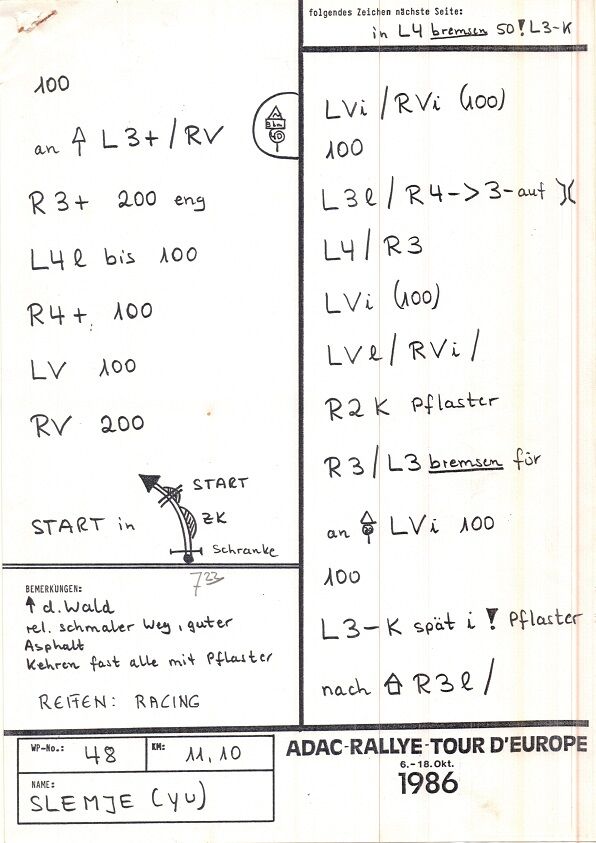 100
an L3+ / RV
R3+ 200 eng
L4l bis 100
R4+ 100
LV 100
RV 200
START
ZK
START in
Schranke
7 22
BEMERKUNGEN:
↑ d. Wald
rel. schmaler Weg, guter
Asphalt
Kehren fast alle mit Pflaster
REIFEN: RACING
folgendes Zeichen nächste Seite:
in L4 bremsen 50 ! L3-K
LVi / RVi (100)
100
L3l / R4 -> 3- auf )(
L4 / R3
LVi (100)
LVl / RVi /
R2 K Pflaster
R3 / L3 bremsen für
an LVi 100
100
L3-K spät i ! Pflaster
nach R3l /
WP-No.: 48 KM: 11,10
NAME:
SLEMJE (YU)
ADAC-RALLYE-TOUR D'EUROPE
6.-18.Okt.
1986